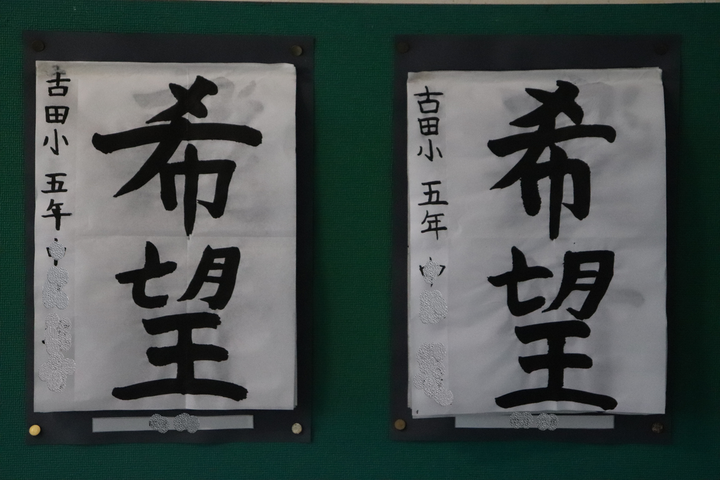 希望
古田小 五年 中
希望
古田小 五年 中